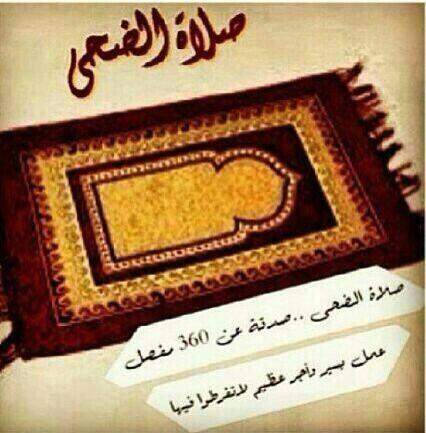 صلاة الضحى
صلاة الضحى ..صدقة عن 360 مفصل
عمل يسير وأجر عظيم لاتفرطوا فيها